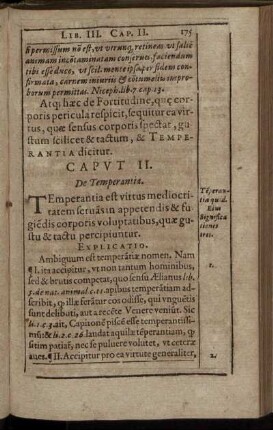 LIB. III. CAP. II. 175
ſi permiſſum nõ eſt, vt vtrunq; retineas vt ſaltē
animam incõtaminatam conſerues, faciendum
tibi eſſe duce, vt ſcil. mente ipſa per fidem con-
firmata, carnem iniuriis & cõtumeliis impro-
borum permittas. Niceph. lib. 7. cap. 13.
Atq; hæc de Fortitudine, quę cor-
poris pericula reſpicit, ſequitur ea vir-
tus, quæ ſenſus corporis ſpectat, gu-
ſtum ſcilicet & tactum, & TEMPE-
RANTIA dicitur.
CAPVT II.
De Temperantia.
TEmperantia eſt virtus mediocri-
tatem ſeruãs in appetendis & fu-
giēdis corporis voluptatibus, quæ gu-
ſtu & tactu percipiuntur.
Tẽperan-
tia quid.
Eius
ſignifica
tiones
tres.
EXPLICATIO.
Ambiguum eſt temperãtiæ nomen. Nam
¶ I. ita accipitur, vt non tantum hominibus,
ſed & brutis competat, quo ſenſu Ælianus lib.
5. de nat. animal. c. 11. apibus temperãtiam ad-
ſcribit, ꝙ illæ ferãtur eos odiſſe, qui vnguētis
ſunt delibuti, aut a recēte Venere veniūt. Sic
1.
ſitim patiaſ, nec ſe puluere volutet, vt ceteræ
aues. ¶ II. Accipitur pro ea virtute generaliter,
2.